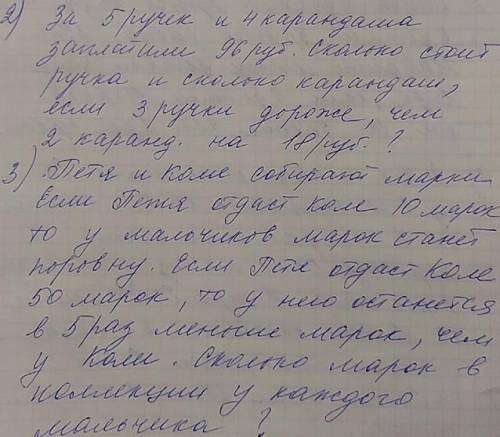 2) За 5 ручек и 4 карандаша
заплатили 96 руб. Сколько стоит
ручка и сколько карандаш,
если 3 ручки дороже, чем
2 каранд. на 18 руб.?
3) Петя и Коля собирают марки.
Если Петя отдаст Коле 10 марок
то у мальчиков марок станет
поровну. Если Петя отдаст Коле
50 марок, то у него останется
в 5 раз меньше марок, чем
у Коли. Сколько марок в
коллекции у каждого
мальчика?